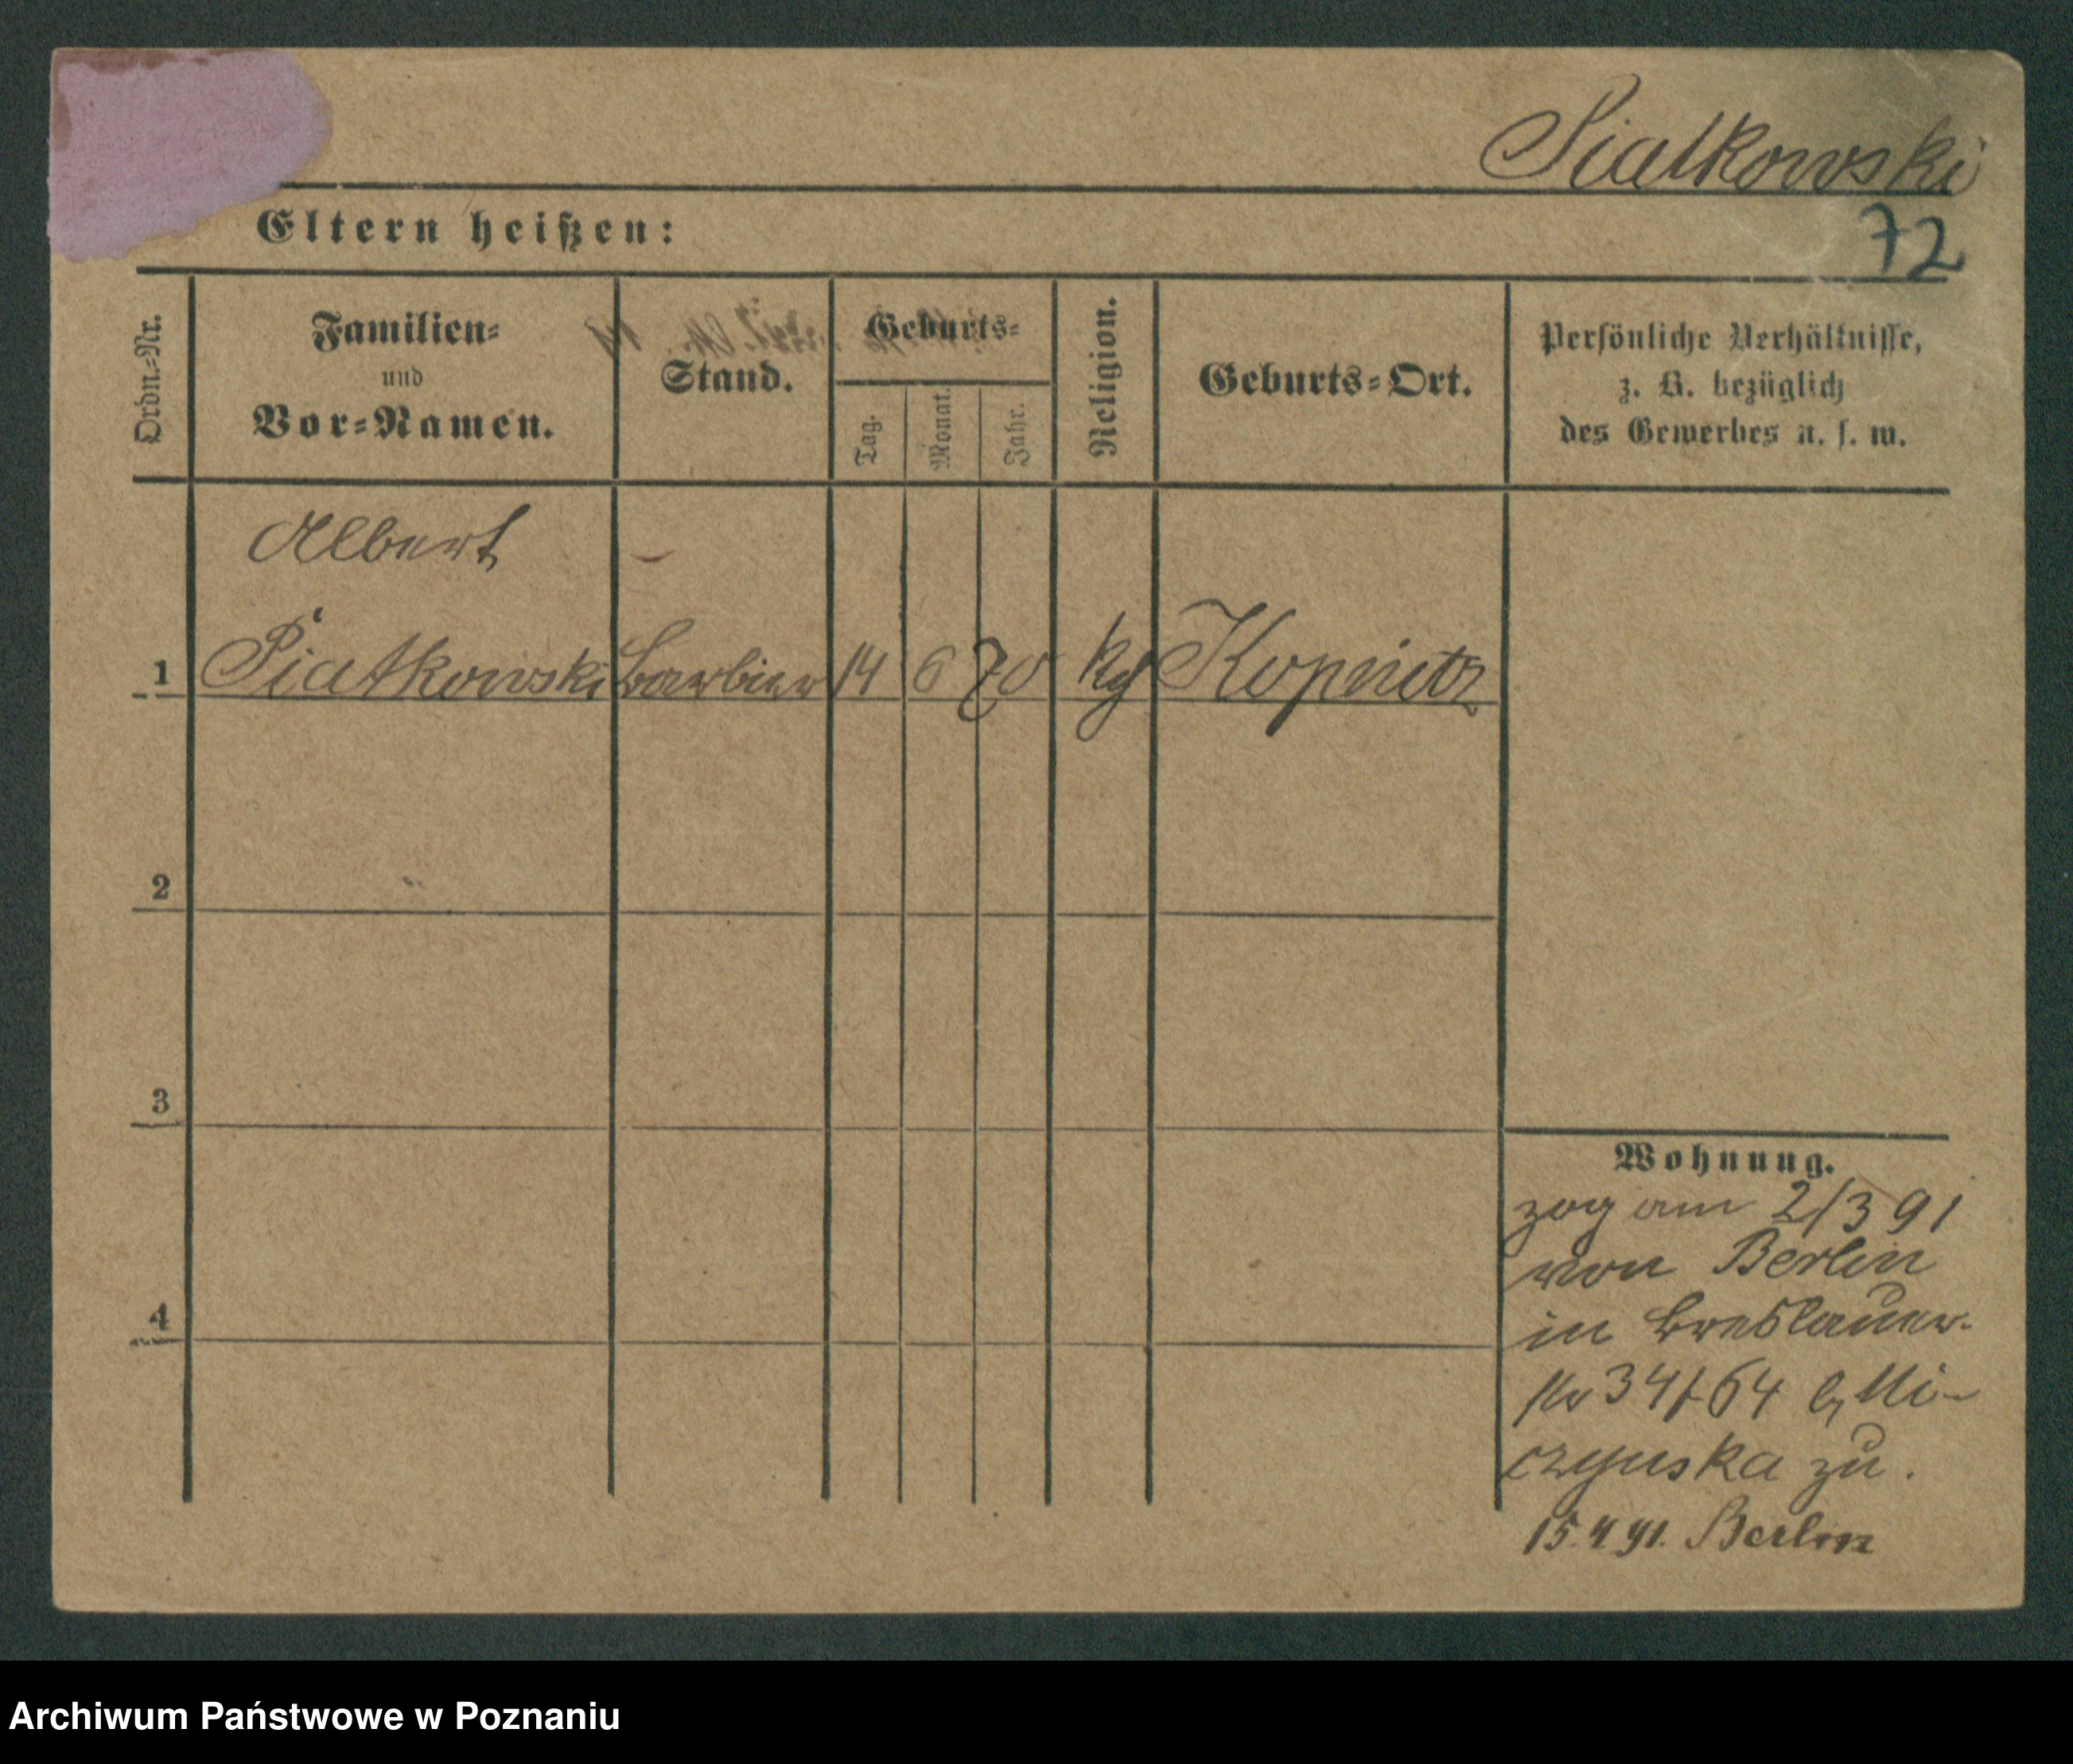 Piatkowski
Eltern heißen:
72
Ordn.-Nr.
Familien-
und
Vor-Namen.
Stand.
Geburts-
Tag.
Monat.
Jahr.
Religion.
Geburts-Ort.
Persönliche Verhältnisse,
z. B. bezüglich
des Gewerbes u. s. w.
Albert
1 Piatkowski Barbier 14 6 70 Kopnitz
2
3
4
Wohnung.
zog am 2/3 91
von Berlin
in Breslauer-
str 34/64 Mi-
czynska zu.
15.4.91. Berlin
Archiwum Państwowe w Poznaniu